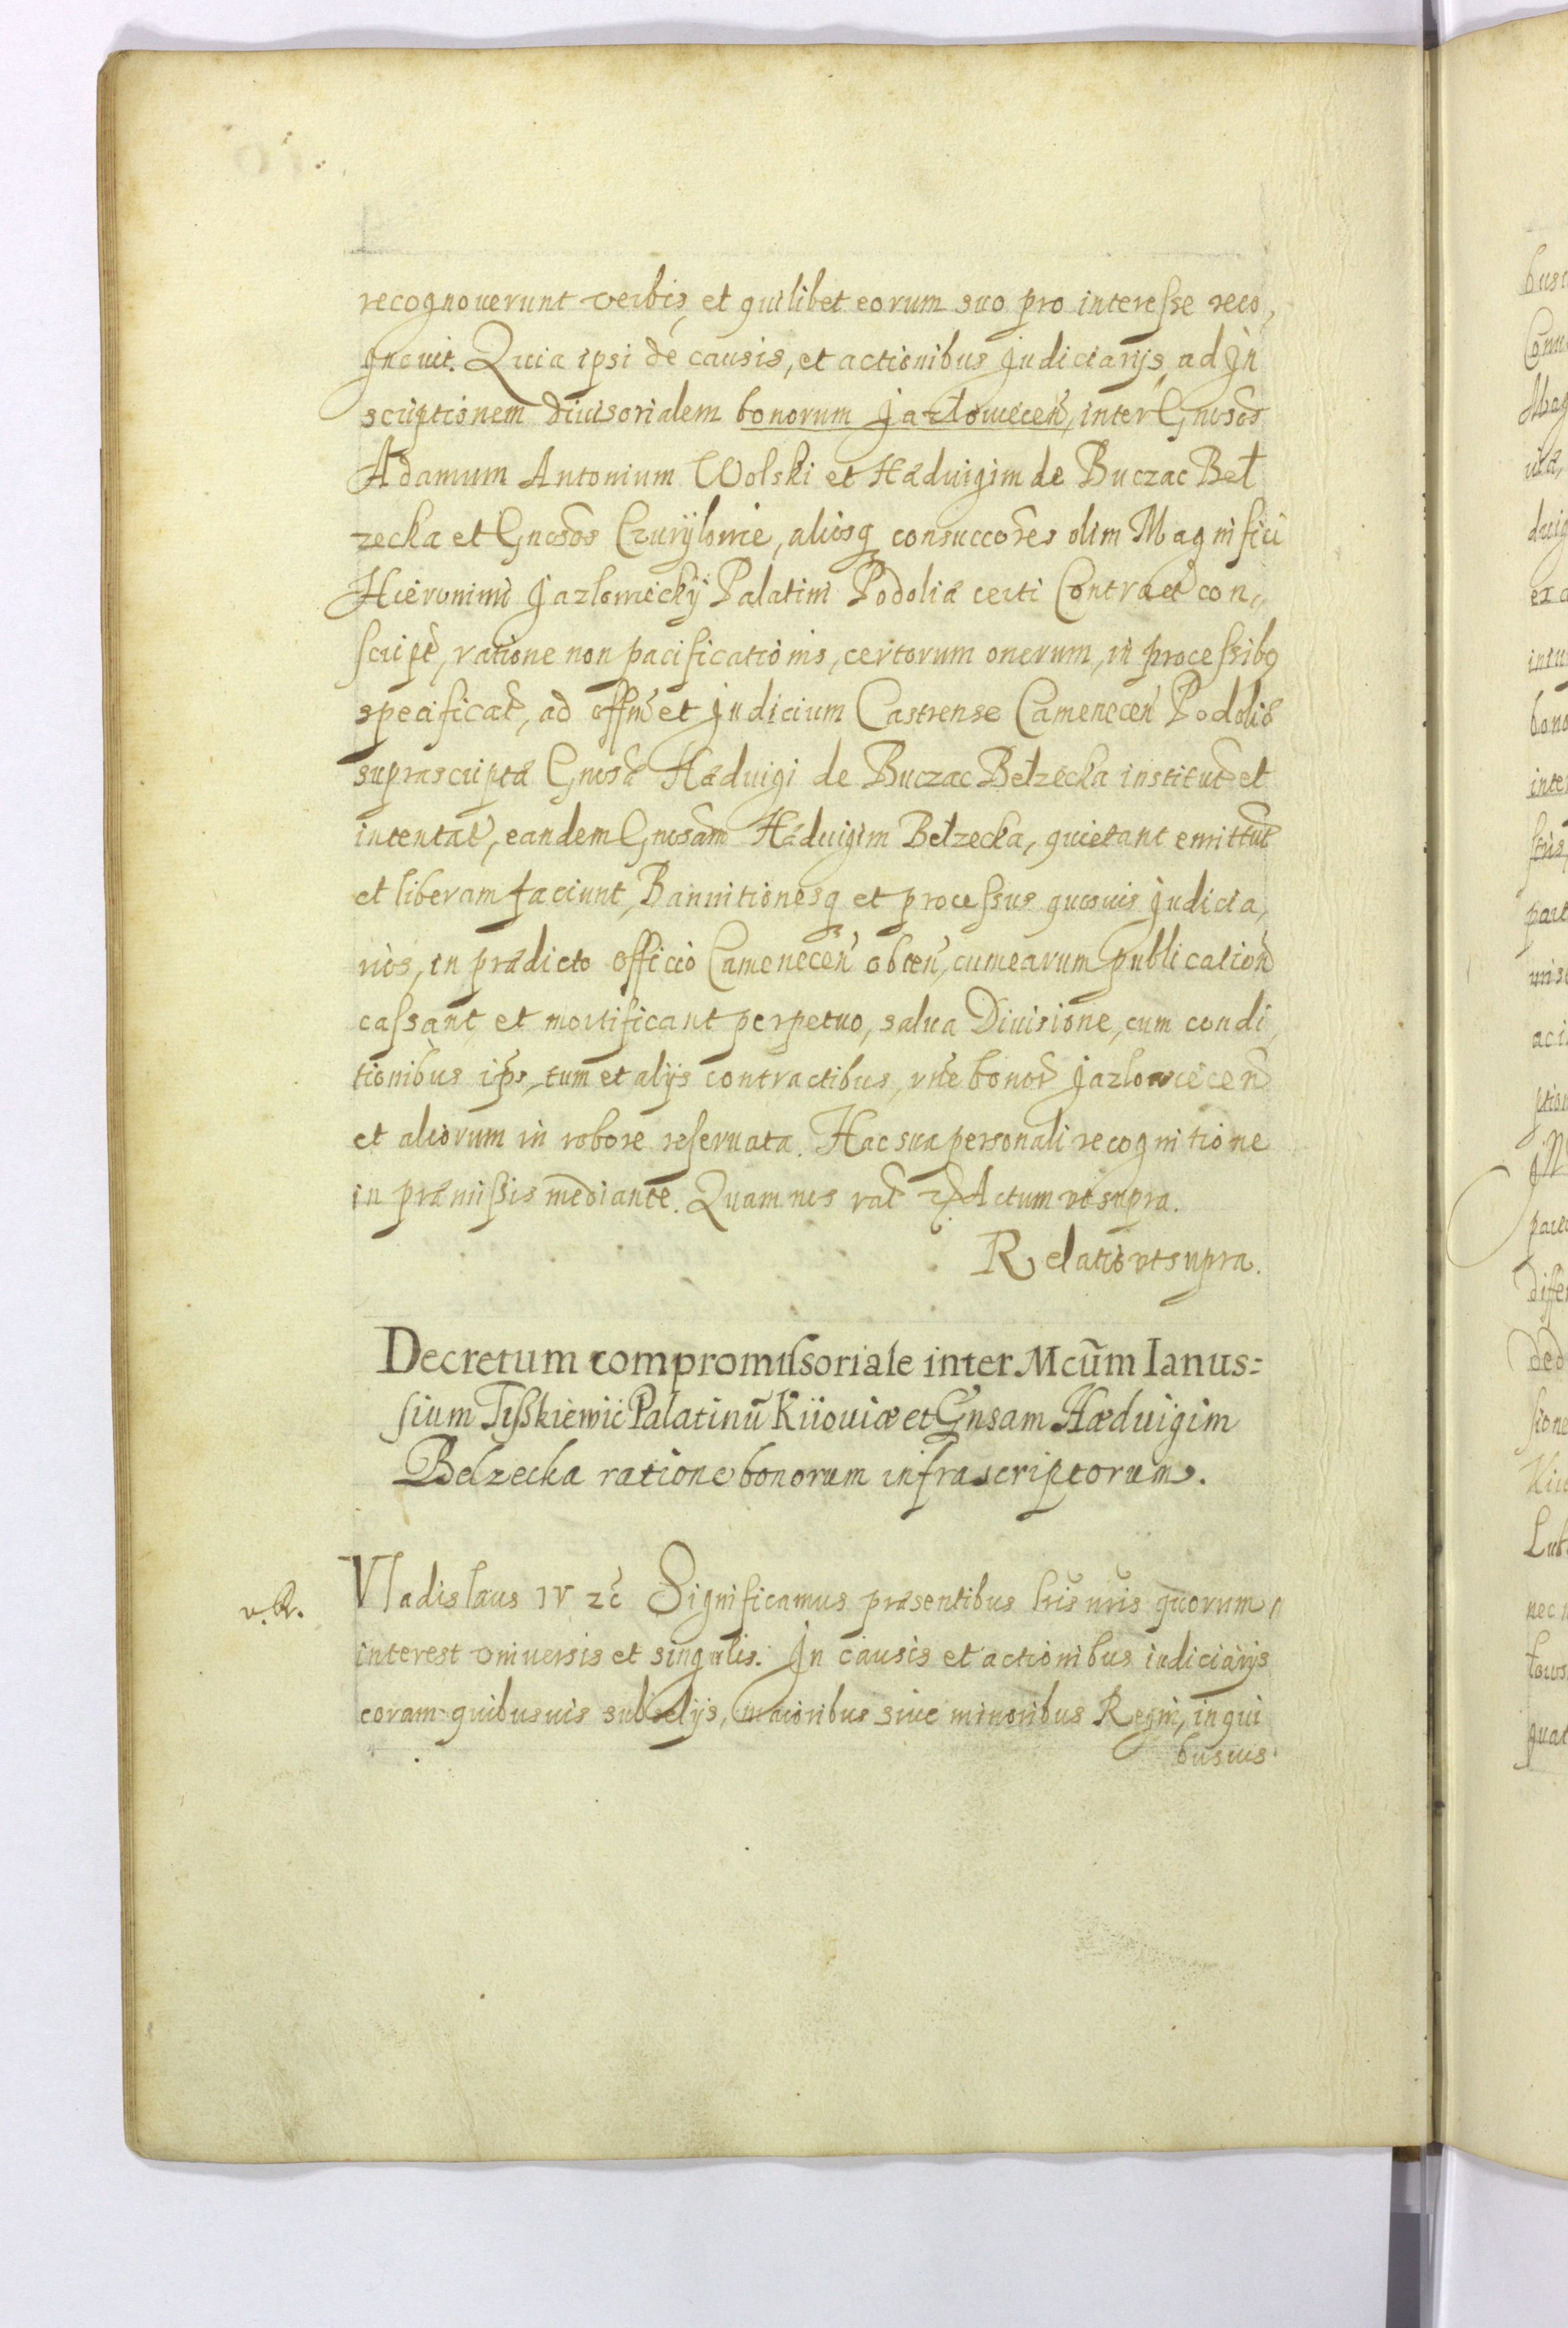 recognouerunt verbis, et quilibet eorum suo pro interesse reco,
gnouit. Quia ipsi de causis, et actionibus Judiciarijs, ad Jn
scriptionem diuisorialem bonorum Jazłowiecen̄, inter Gnosos
Adamum Antonium Wolski et Hæduigim de Buczac Beł
zecka et Gnosos Czuryłowie, aliosq consuccores olim Magnifici
Hieronimi Jazlowiecky Palatini Podoliæ certi Contract con,,
script, ratione non pacificationis, certorum onerum, in processibq
specificat, ad offm et Judicium Castrense Camenecen Podoliæ
suprascriptæ Gnosæ Hæduigi de Buczac Bełzecka institut et
intentat, eandem Gnosam Hæduigim Bełzecka, quietant emittut
et liberam faciunt, Bannitionesq et processus quosuis Judicia,
rios, in prædicto officio Camenecen obten, cum earum publication
cassant et mortificant perpetuo, salua Diuisione, cum condi,
tionibus ips, tum et alijs contractibus, rne bonor Jazlowiecen
et aliorum in robore reseruata. Hac sua personali recognitione
in præmissis mediante. Quam nos rat &c Actum vt supra.
Relatio vt supra.
Decretum compromissoriale inter Mcūm Ianus=
sium Tißkiewic Palatinū Kiiouiæ et Gnsam Hæduigim
Belzecka ratione bonorum infrascriptorum.
v. R.
Vladislaus IV zc̄ Significamus præsentibus lris nris quorum
interest vniuersis et singulis. Jn causis et actionibus iudiciarijs
coram quibusuis subselijs, maioribus siue minoribus Regni, in qui
busuis